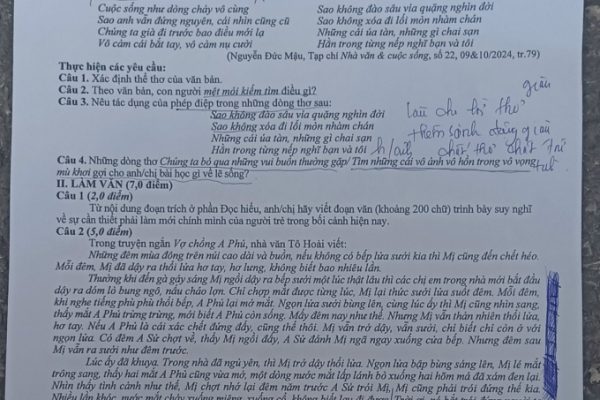 Cuộc sống như dòng chảy vô cùng
Sao anh vẫn đứng nguyên, cái nhìn cũng cũ
Chúng ta già đi trước bao điều mới lạ
Vô cảm cái bắt tay, vô cảm nụ cười
Sao không đào sâu vỉa quặng nghìn đời
Sao không xóa đi lối mòn nhàm chán
Những cái úa tàn, những gì chai sạn
Hằn trong từng nếp nghĩ bạn và tôi
(Nguyễn Đức Mậu, Tạp chí Nhà văn & cuộc sống, số 22, 09&10/2024, tr.79)
Thực hiện các yêu cầu:
Câu 1. Xác định thể thơ của văn bản.
Câu 2. Theo văn bản, con người mệt mỏi kiếm tìm điều gì?
Câu 3. Nêu tác dụng của phép điệp trong những dòng thơ sau:
Sao không đào sâu vỉa quặng nghìn đời
Sao không xóa đi lối mòn nhàm chán
Những cái úa tàn, những gì chai sạn
Hằn trong từng nếp nghĩ bạn và tôi
giàu
thơ
giàu
Câu 4. Những dòng thơ Chúng ta bỏ qua những vui buồn thường gặp/ Tìm những cái vô ảnh vô hồn trong vô vọng
mù khơi gợi cho anh/chị bài học gì về lẽ sống?
II. LÀM VĂN (7,0 điểm)
Câu 1 (2,0 điểm)
Từ nội dung đoạn trích ở phần Đọc hiểu, anh/chị hãy viết đoạn văn (khoảng 200 chữ) trình bày suy nghĩ
về sự cần thiết phải làm mới chính mình của người trẻ trong bối cảnh hiện nay.
Câu 2 (5,0 điểm)
Trong truyện ngắn Vợ chồng A Phủ, nhà văn Tô Hoài viết:
Những đêm mùa đông trên núi cao dài và buồn, nếu không có bếp lửa sưởi kia thì Mị cũng đến chết héo.
Mỗi đêm, Mị đã dậy ra thổi lửa hơ tay, hơ lưng, không biết bao nhiêu lần.
Thường khi đến gà gáy sáng Mị ngồi dậy ra bếp sưởi một lúc thật lâu thì các chị em trong nhà mới bắt đầu
dậy ra dóm lò bung ngô, nấu cháo lợn. Chỉ chợp mắt được từng lúc, Mị lại thức sưởi lửa suốt đêm. Mỗi đêm,
khi nghe tiếng phù phù thổi bếp, A Phủ lại mở mắt. Ngọn lửa sưởi bùng lên, cùng lúc ấy thì Mị cũng nhìn sang,
thấy mắt A Phủ trừng trừng, mới biết A Phủ còn sống. Mấy đêm nay như thế. Nhưng Mị vẫn thản nhiên thổi lửa,
hơ tay. Nếu A Phủ là cái xác chết đứng đấy, cũng thế thôi. Mị vẫn trở dậy, vẫn sưởi, chỉ biết chỉ còn ở với
ngọn lửa. Có đêm A Sử chợt về, thấy Mị ngồi đấy, A Sử đánh Mị ngã ngay xuống cửa bếp. Nhưng đêm sau
Mị vẫn ra sưởi như đêm trước.
Lúc ấy đã khuya. Trong nhà đã ngủ yên, thì Mị trở dậy thổi lửa. Ngọn lửa bập bùng sáng lên, Mị lé mắt
trông sang, thấy hai mắt A Phủ cũng vừa mở, một dòng nước mắt lấp lánh bò xuống hai hõm má đã xám đen lại.
Nhìn thấy tình cảnh như thế, Mị chợt nhớ lại đêm năm trước A Sử trói Mị, Mị cũng phải trói đứng thế kia.